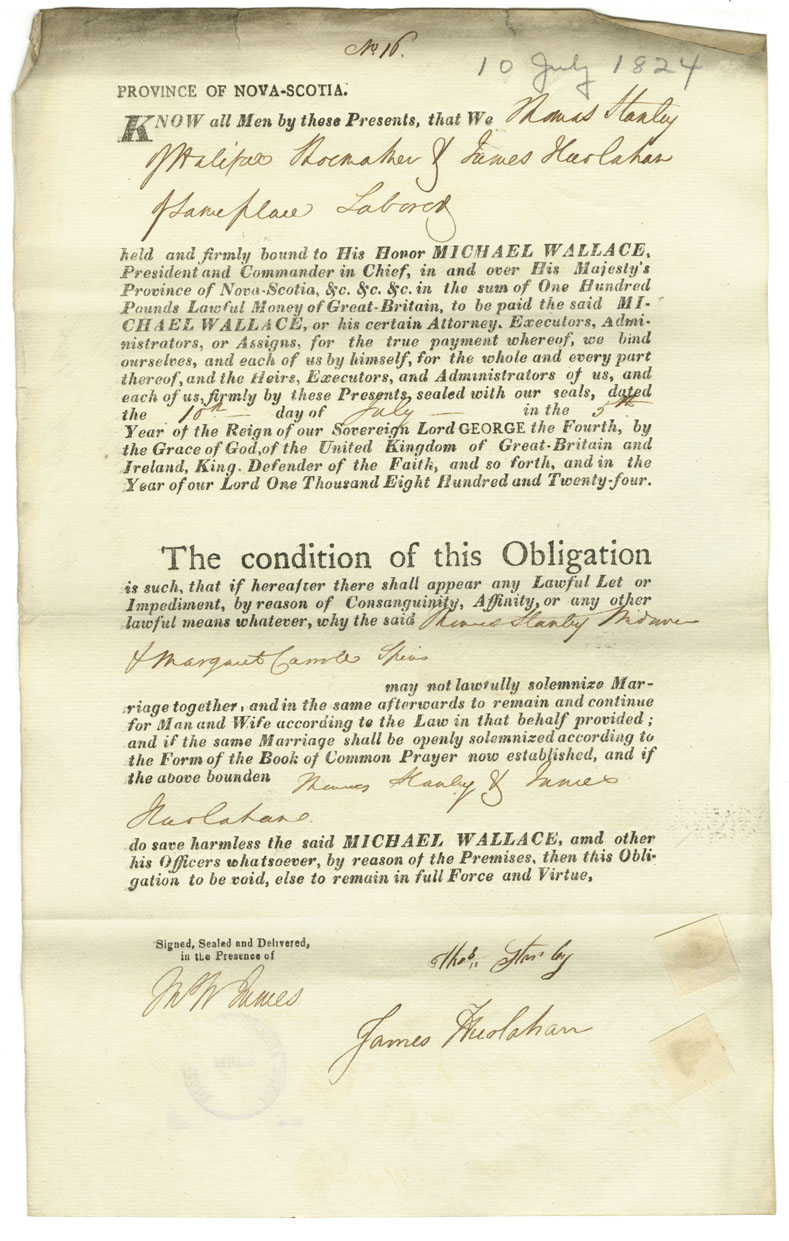 No. 16.
10 July 1824
PROVINCE OF NOVA-SCOTIA.
KNOW all Men by these Presents, that We Thomas Stanley
of Halifax Shoemaker & James
of same place
held and firmly bound to His Honor MICHAEL WALLACE,
President and Commander in Chief, in and over His Majesty's
Province of Nova-Scotia, &c. &c. &c. in the sum of One Hundred
Pounds Lawful Money of Great-Britain, to be paid the said MI-
CHAEL WALLACE, or his certain Attorney, Executors, Admi-
nistrators, or Assigns, for the true payment whereof, we bind
ourselves, and each of us by himself, for the whole and every part
thereof, and the Heirs, Executors, and Administrators of us, and
each of us, firmly by these Presents, sealed with our seals, dated
the 10th day of July in the 5th
Year of the Reign of our Sovereign Lord GEORGE the Fourth, by
the Grace of God, of the United Kingdom of Great-Britain and
Ireland, King, Defender of the Faith, and so forth, and in the
Year of our Lord One Thousand Eight Hundred and Twenty-four.
The condition of this Obligation
is such, that if hereafter there shall appear any Lawful Let or
Impediment, by reason of Consanguinity, Affinity, or any other
lawful means whatever, why the said Thomas Stanley
& Margaret
may not lawfully solemnize Mar-
riage together, and in the same afterwards to remain and continue
for Man and Wife according to the Law in that behalf provided;
and if the same Marriage shall be openly solemnized according to
the Form of the Book of Common Prayer now established, and if
the above bounden Thomas Stanley & James
do save harmless the said MICHAEL WALLACE, amd other
his Officers whatsoever, by reason of the Premises, then this Obli-
gation to be void, else to remain in full Force and Virtue,
Signed, Sealed and Delivered,
in the Presence of
Thos. Stanley
James
James